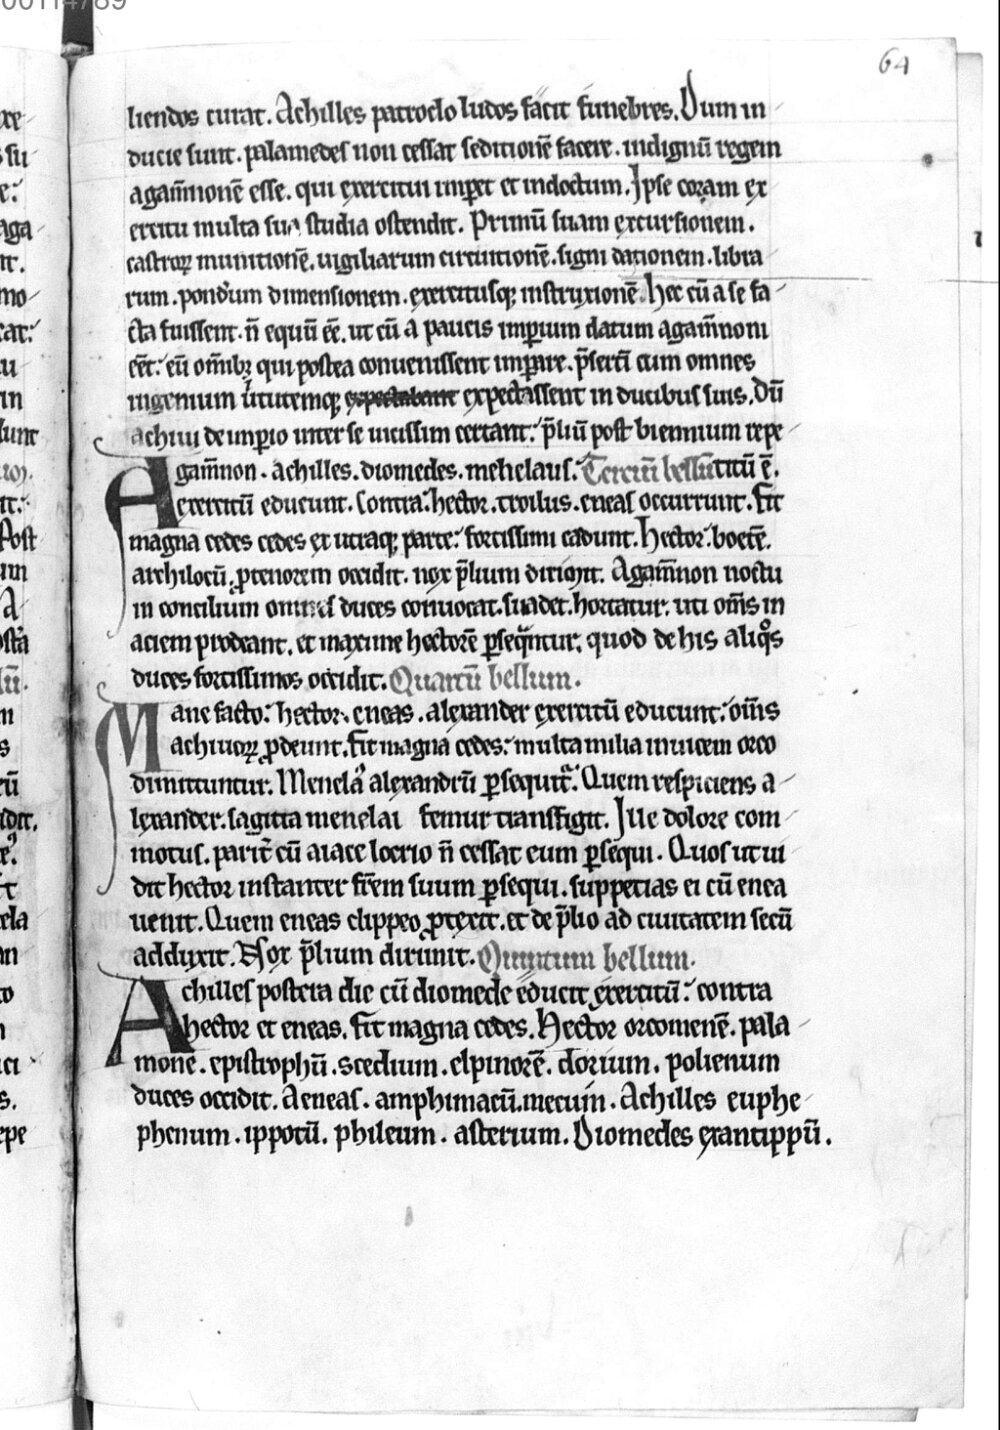 64
liendos curat. Achilles patroclo ludos facit funebres. Dum in
ducie sunt. palamedes non cessat seditionē facere. indignū regem
agam̄nonē esse. qui exercitui imp̄et et indoctum. Ipse coram ex
ercitu multa sua studia ostendit. Primū suam excursionem.
castroꝝ munitionē. uigiliarum circuitionē. signi dationem. libra
rum. pond̄um dimensionem. exercitusqꝫ instruxionē. hec cū a se fa
cta fuissent. n̄ equū ēē. ut cū a paucis imp̄ium datum agam̄noni
eēt. eū om̄ibꝫ qui postea conuenissent imp̄are. p̄serti cum omnes
ingenium u̓tutemqꝫ expectabant expectassent in ducibus suis. Dū
achiui de imp̄io inter se uicissim certant. p̄liū post biennium repe
gam̄non. achilles. diomedes. mehelaus. Terciū bellū titū ē.
A exercitū educunt. Contra hector. troilus. eneas occurrunt. Fit
magna cedes cedes ex utraqꝫ parte. fortissimi cadunt. Hector. boetē.
archilocū. ꝓtenorem occidit. nox p̄lium dirimit. Agam̄non noctu
in concilium omnes duces conuocat. suadet. hortatur. uti om̄s in
aciem prodeant. et maxime hectorē ꝑseq̄ntur. quod de his aliqͦs
duces fortissimos occidit. Quartū bellum.
M ane facto. hector. eneas. alexander exercitū educunt. om̄s
achiuoꝝ ꝓdeunt. Fit magna cedes. multa milia inuicem orco
dimittuntur. Menelaꝰ alexandrū ꝑsequit᷑. Quem respiciens a
lexander. sagitta menelai femur transfigit. Ille dolore com
motus. parit̄ cū aiace locrio n̄ cessat eum ꝑsequi. Quos ut ui
dit hector instanter fr̄em suum ꝑsequi. suppetias ei cū enea
uenit. Quem eneas clippeo ꝓtexit. et de p̄lio ad ciuitatem secū
adduxit. Nox p̄lium dirimit. Quintum bellum.
A chilles postera die cū diomede educit exercitū. contra
hector et eneas. Fit magna cedes. Hector orcomenē. pala
monē. epistrophū. scedium. elpinorē. dorium. polienum
duces occidit. Aeneas. amphimacū. Achilles euphe
phenum. ippotū. phileum. asterium. Diomedes xantippū.